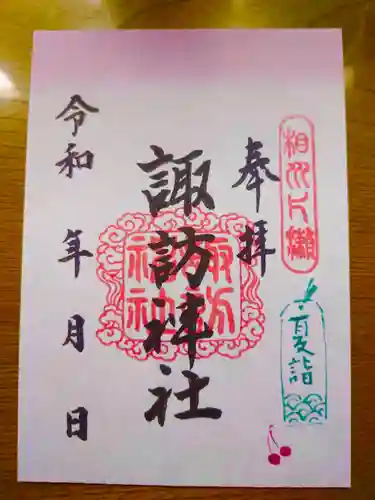 相州片瀬
奉拝
夏詣
諏訪神社
諏訪神社
令和 年 月 日